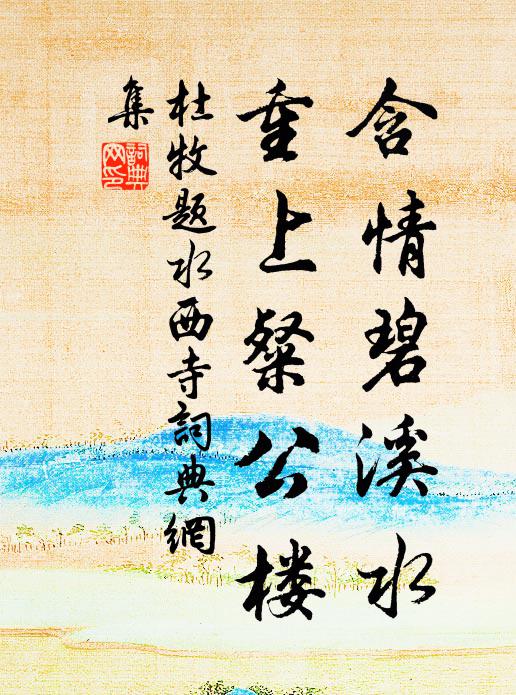 含情碧溪水
重上粲公楼
杜牧题水西寺詞典網
集
詞典網印